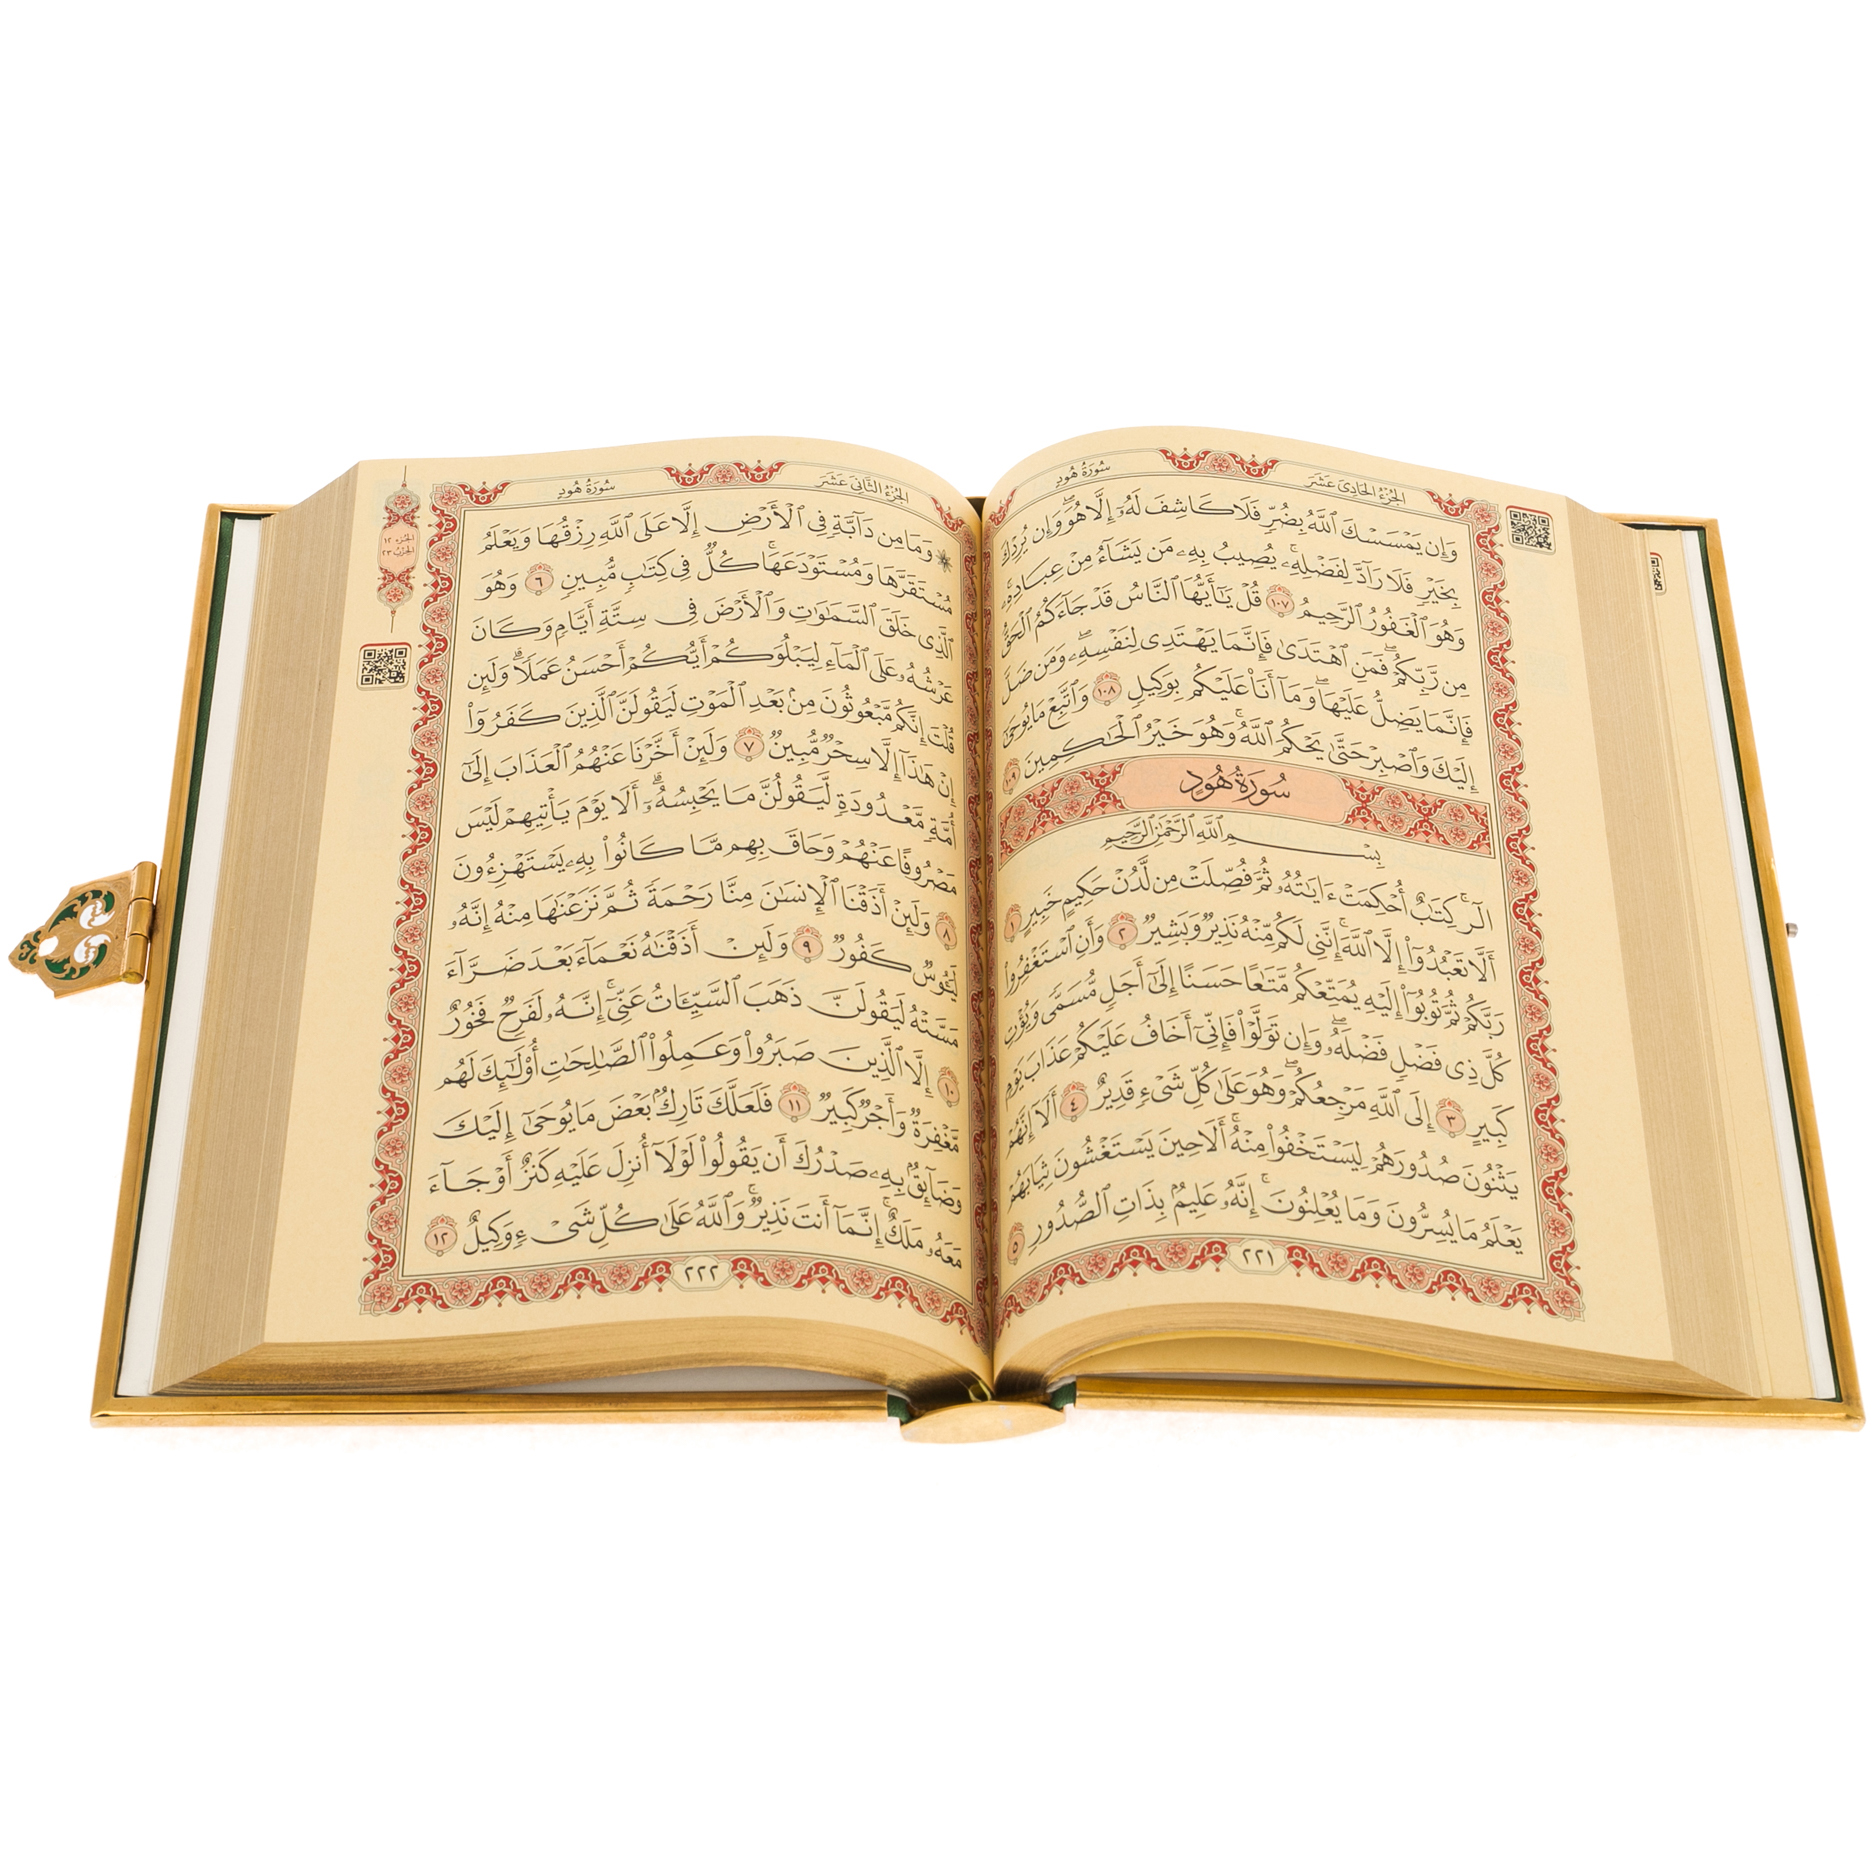 سُورَةُ هُودٍ
الجُزْءُ الحَادِيَ عَشَرَ
وَإِن يَمْسَسْكَ ٱللَّهُ بِضُرٍّ فَلَا كَاشِفَ لَهُۥٓ إِلَّا هُوَۖ وَإِن يُرِدْكَ
بِخَيْرٍ فَلَا رَآدَّ لِفَضْلِهِۦۚ يُصِيبُ بِهِۦ مَن يَشَآءُ مِنْ عِبَادِهِۦۚ
وَهُوَ ٱلْغَفُورُ ٱلرَّحِيمُ ١٠٧ قُلْ يَـٰٓأَيُّهَا ٱلنَّاسُ قَدْ جَآءَكُمُ ٱلْحَقُّ
مِن رَّبِّكُمْۖ فَمَنِ ٱهْتَدَىٰ فَإِنَّمَا يَهْتَدِى لِنَفْسِهِۦۖ وَمَن ضَلَّ
فَإِنَّمَا يَضِلُّ عَلَيْهَاۖ وَمَآ أَنَا۠ عَلَيْكُم بِوَكِيلٍ ١٠٨ وَٱتَّبِعْ مَا يُوحَىٰٓ
إِلَيْكَ وَٱصْبِرْ حَتَّىٰ يَحْكُمَ ٱللَّهُۚ وَهُوَ خَيْرُ ٱلْحَـٰكِمِينَ ١٠٩
سُورَةُ هُودٍ
بِسْمِ ٱللَّهِ ٱلرَّحْمَـٰنِ ٱلرَّحِيمِ
الٓرۚ كِتَـٰبٌ أُحْكِمَتْ ءَايَـٰتُهُۥ ثُمَّ فُصِّلَتْ مِن لَّدُنْ حَكِيمٍ خَبِيرٍ ١
أَلَّا تَعْبُدُوٓا۟ إِلَّا ٱللَّهَۚ إِنَّنِى لَكُم مِّنْهُ نَذِيرٌ وَبَشِيرٌ ٢ وَأَنِ ٱسْتَغْفِرُوا۟
رَبَّكُمْ ثُمَّ تُوبُوٓا۟ إِلَيْهِ يُمَتِّعْكُم مَّتَـٰعًا حَسَنًا إِلَىٰٓ أَجَلٍ مُّسَمًّى وَيُؤْتِ
كُلَّ ذِى فَضْلٍ فَضْلَهُۥۖ وَإِن تَوَلَّوْا۟ فَإِنِّىٓ أَخَافُ عَلَيْكُمْ عَذَابَ يَوْمٍ
كَبِيرٍ ٣ إِلَى ٱللَّهِ مَرْجِعُكُمْۖ وَهُوَ عَلَىٰ كُلِّ شَىْءٍ قَدِيرٌ ٤ أَلَآ إِنَّهُمْ
يَثْنُونَ صُدُورَهُمْ لِيَسْتَخْفُوا۟ مِنْهُۚ أَلَا حِينَ يَسْتَغْشُونَ ثِيَابَهُمْ
يَعْلَمُ مَا يُسِرُّونَ وَمَا يُعْلِنُونَۚ إِنَّهُۥ عَلِيمٌۢ بِذَاتِ ٱلصُّدُورِ ٥
٢٢١
سُورَةُ هُودٍ
الجُزْءُ الثَّانِيَ عَشَرَ
الجزء ١٢
الحزب ٢٣
وَمَا مِن دَآبَّةٍ فِى ٱلْأَرْضِ إِلَّا عَلَى ٱللَّهِ رِزْقُهَا وَيَعْلَمُ
مُسْتَقَرَّهَا وَمُسْتَوْدَعَهَاۚ كُلٌّ فِى كِتَـٰبٍ مُّبِينٍ ٦ وَهُوَ
ٱلَّذِى خَلَقَ ٱلسَّمَـٰوَٰتِ وَٱلْأَرْضَ فِى سِتَّةِ أَيَّامٍ وَكَانَ
عَرْشُهُۥ عَلَى ٱلْمَآءِ لِيَبْلُوَكُمْ أَيُّكُمْ أَحْسَنُ عَمَلًاۗ وَلَئِن
قُلْتَ إِنَّكُم مَّبْعُوثُونَ مِنۢ بَعْدِ ٱلْمَوْتِ لَيَقُولَنَّ ٱلَّذِينَ كَفَرُوٓا۟
إِنْ هَـٰذَآ إِلَّا سِحْرٌ مُّبِينٌ ٧ وَلَئِنْ أَخَّرْنَا عَنْهُمُ ٱلْعَذَابَ إِلَىٰٓ
أُمَّةٍ مَّعْدُودَةٍ لَّيَقُولُنَّ مَا يَحْبِسُهُۥٓۗ أَلَا يَوْمَ يَأْتِيهِمْ لَيْسَ
مَصْرُوفًا عَنْهُمْ وَحَاقَ بِهِم مَّا كَانُوا۟ بِهِۦ يَسْتَهْزِءُونَ
٨ وَلَئِنْ أَذَقْنَا ٱلْإِنسَـٰنَ مِنَّا رَحْمَةً ثُمَّ نَزَعْنَـٰهَا مِنْهُ إِنَّهُۥ
لَيَـُٔوسٌ كَفُورٌ ٩ وَلَئِنْ أَذَقْنَـٰهُ نَعْمَآءَ بَعْدَ ضَرَّآءَ
مَسَّتْهُ لَيَقُولَنَّ ذَهَبَ ٱلسَّيِّـَٔاتُ عَنِّىٓۚ إِنَّهُۥ لَفَرِحٌ فَخُورٌ
١٠ إِلَّا ٱلَّذِينَ صَبَرُوا۟ وَعَمِلُوا۟ ٱلصَّـٰلِحَـٰتِ أُو۟لَـٰٓئِكَ لَهُم
مَّغْفِرَةٌ وَأَجْرٌ كَبِيرٌ ١١ فَلَعَلَّكَ تَارِكٌۢ بَعْضَ مَا يُوحَىٰٓ إِلَيْكَ
وَضَآئِقٌۢ بِهِۦ صَدْرُكَ أَن يَقُولُوا۟ لَوْلَآ أُنزِلَ عَلَيْهِ كَنزٌ أَوْ جَآءَ
مَعَهُۥ مَلَكٌۚ إِنَّمَآ أَنتَ نَذِيرٌۚ وَٱللَّهُ عَلَىٰ كُلِّ شَىْءٍ وَكِيلٌ ١٢
٢٢٢